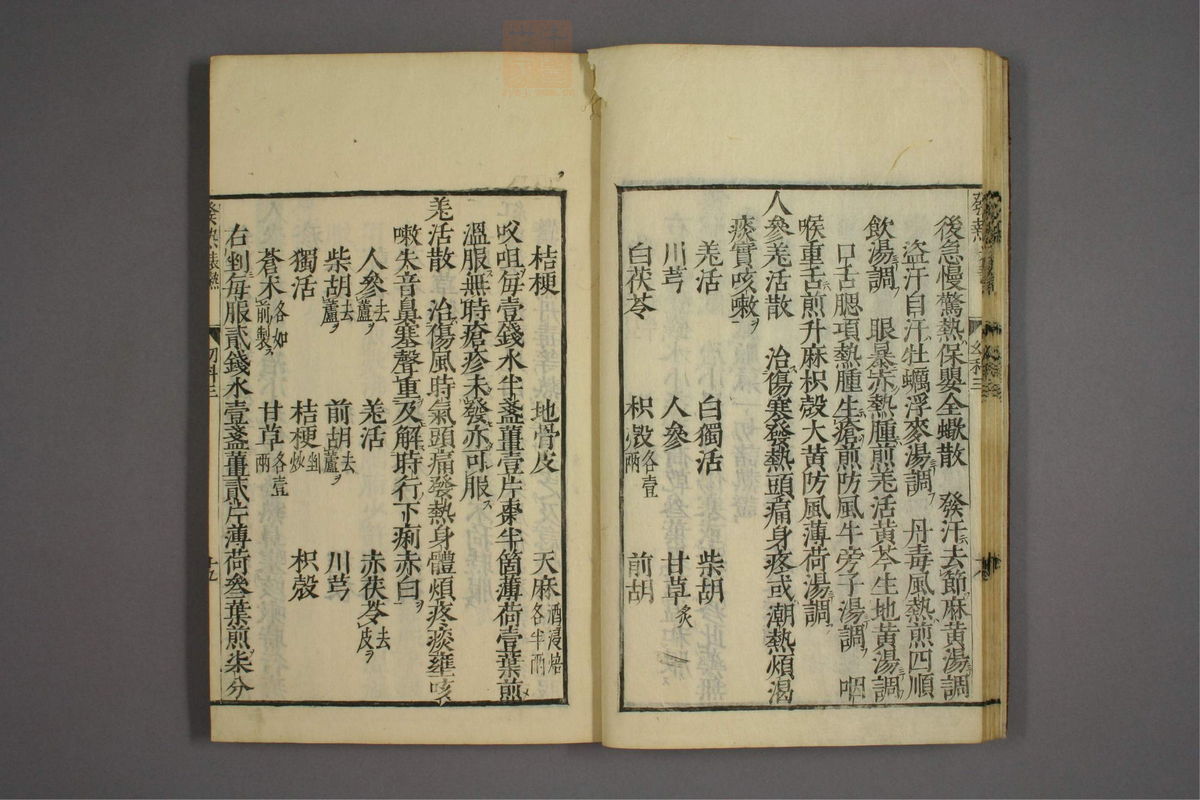 後急慢驚熱保嬰全蝎散　發汗去節麻黃湯調
盜汗自汗牡蠣浮麥湯調　丹毒風熱煎四順
飲湯調　眼暴赤熱腫煎羌活黃芩生地黃湯調
口舌腮項熱腫生瘡煎防風牛旁子湯調　咽
喉重舌煎升麻枳殼大黃防風薄荷湯調
人參羌活散　治傷寒發熱頭痛身疼或潮熱煩渴
痰實咳嗽ヲ
羌活　白獨活　柴胡
川芎　人參　甘草炙
白茯苓　枳殼各壹兩　前胡
桔梗　地骨皮　天麻酒浸焙各半兩
㕮咀每壹錢水半盞薑壹片棗半箇薄荷壹葉煎
溫服無時瘡疹未發亦可服ス
羌活散　治傷風時氣頭痛發熱身體煩疼痰壅咳
嗽失音鼻塞聲重及解時行下痢赤白ヲ
人參去蘆ヲ　羌活　赤茯苓去皮ヲ
柴胡去蘆ヲ　前胡去蘆ヲ　川芎
獨活　桔梗剉炒　枳殼
蒼朮各如前製ス　甘草各壹兩
右剉每服貳錢水壹盞薑貳片薄荷叄葉煎柒分
幼科三
十五